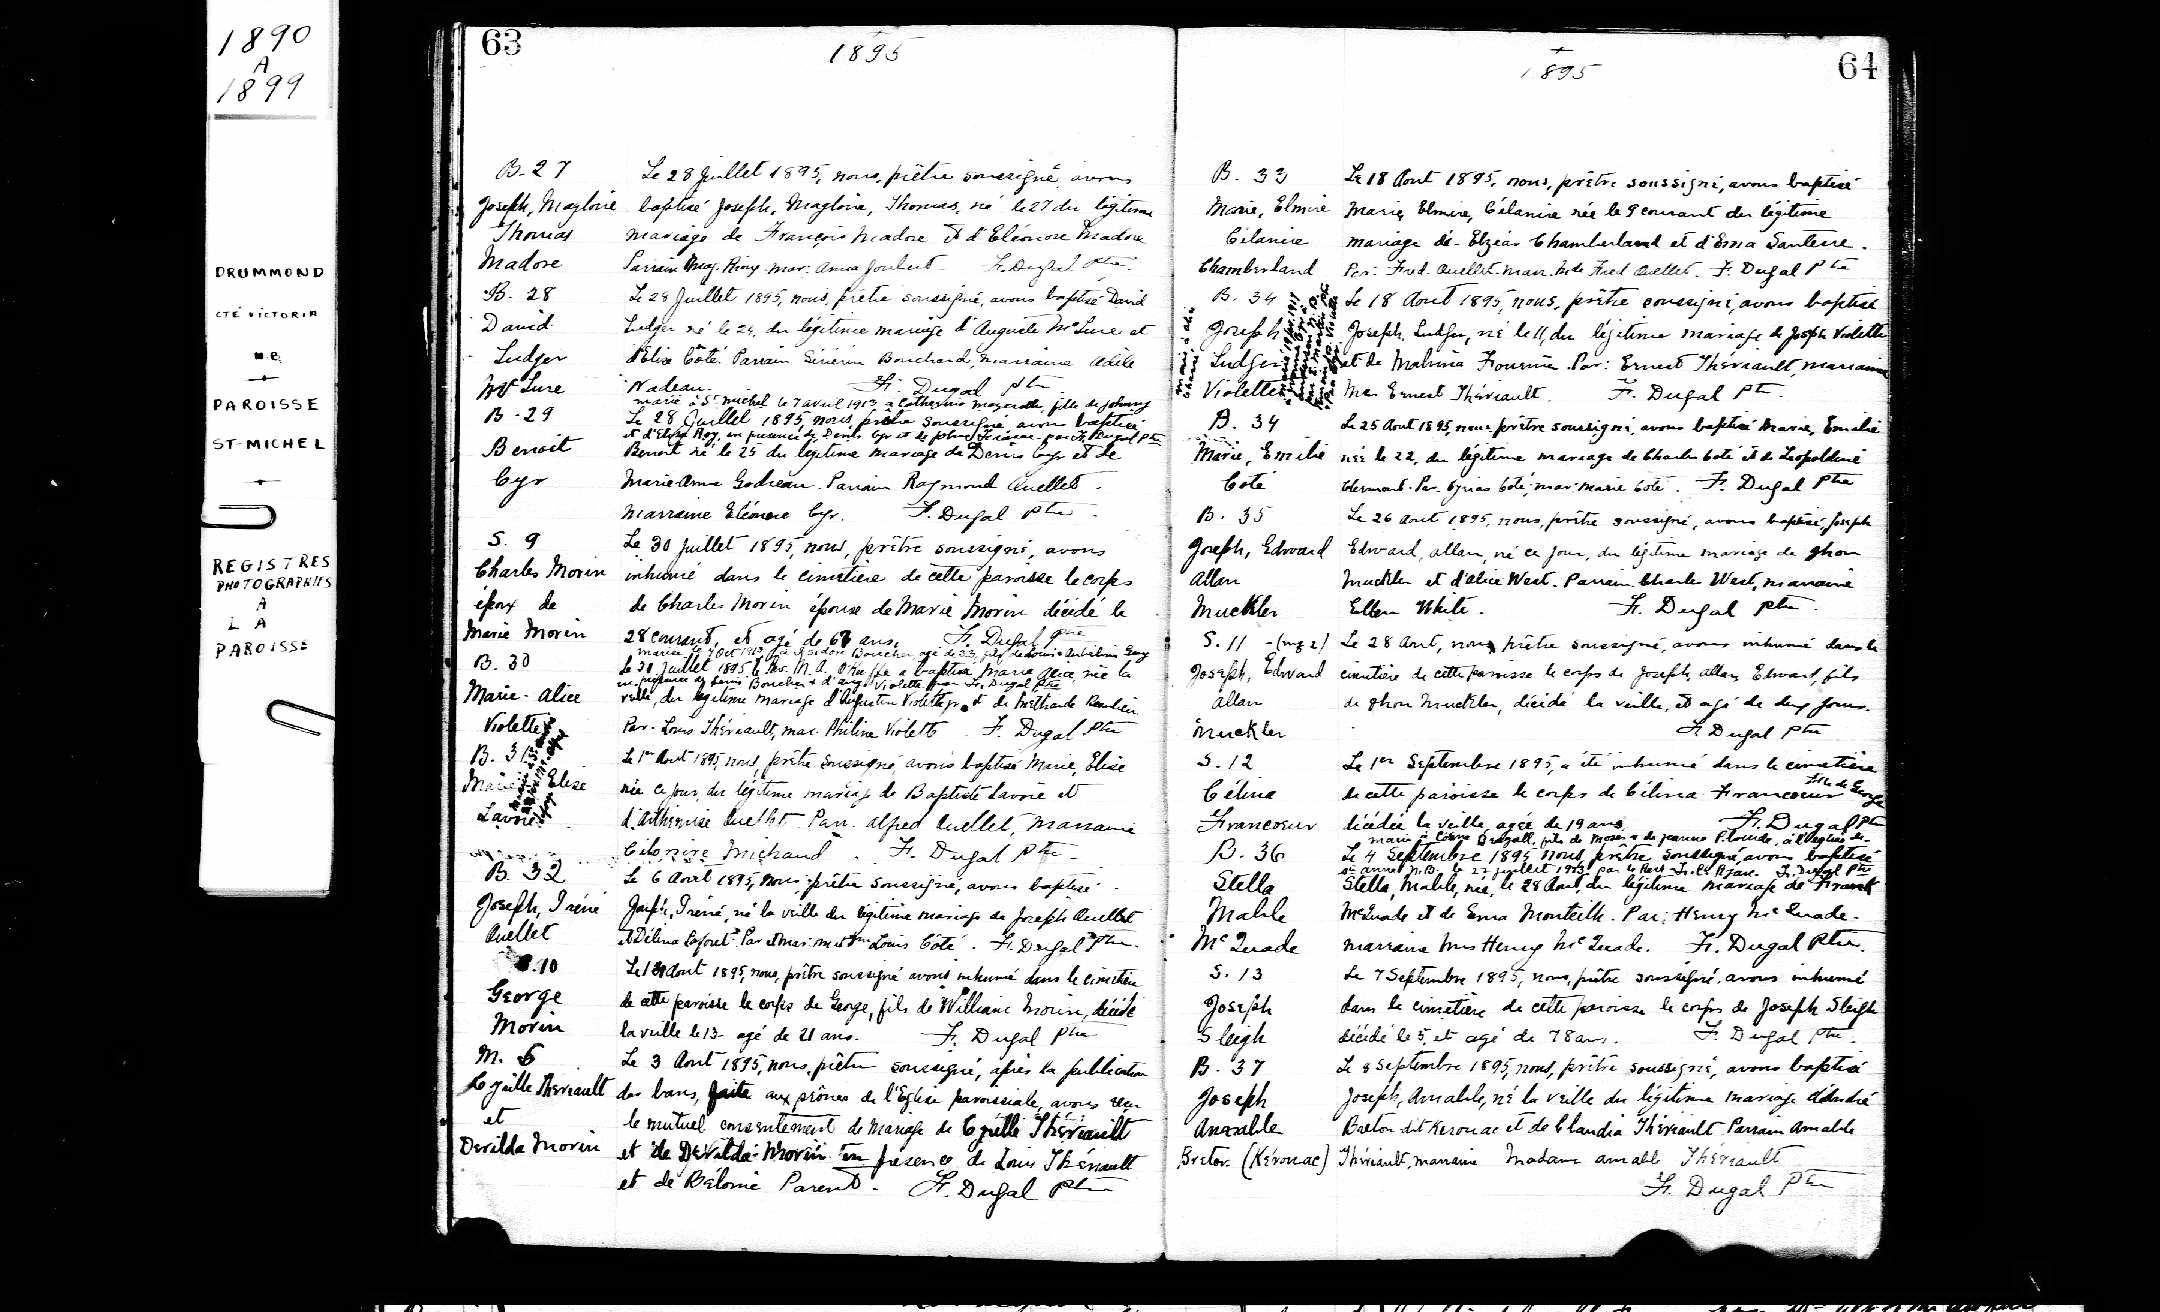 1890
A
1899
DRUMMOND
CTÉ VICTORIA
PAROISSE
ST-MICHEL
REGISTRES
PHOTOGRAPHIÉS
A
LA
PAROISSE
63
1895
B. 27
Joseph, Magloire
Thomas
Madore
Le 28 Juillet 1895, nous, prêtre soussigné, avons
baptisé Joseph, Magloire, Thomas, né le 27 du légitime
mariage de François Madore et d'Eléonore Madore
Parrain Mag. Roy mar. Anna Joubert. F. Dugal Ptre
B. 28
David
Ludger
Mc Lure
Le 28 Juillet 1895, nous, prêtre soussigné, avons baptisé David
Ludger né le 24, du légitime mariage d'Auguste McLure et
d'Elise Côté. Parrain Sévérin Bouchard, marraine Adèle
Nadeau. F. Dugal Ptre
marié à St Michel le 7 avril 1913 à Catherine fille de Johnny
et d'Elise Roy, en présence de Denis Cyr et de John par F. Dugal Ptre
B. 29
Benoit
Cyr
Le 28 Juillet 1895, nous, prêtre soussigné, avons baptisé
Benoit né le 25 du légitime mariage de Denis Cyr et de
Marie-Anne Godreau. Parrain Raymond Ouellet.
Marraine Eléonore Cyr. F. Dugal Ptre
S. 9
Charles Morin
époux de
Marie Morin
Le 30 Juillet 1895, nous, prêtre soussigné, avons
inhumé dans le cimetière de cette paroisse le corps
de Charles Morin épouse de Marie Morin décédé le
28 courant, et agé de ans. F. Dugal Ptre
B. 30
Marie-Alice
Violette
Le 30 Juillet 1895 le Rev. M. A. O'Keeffe a baptisé Marie Alice, née la
veille, du légitime mariage d'Augustin Violette jr. et de Methaide Beaulieu
Par. Louis Thériault, mar. Philine Violette F. Dugal Ptre
B. 31
Marie Elise
Lavoie
Le 1er Aout 1895, nous, prêtre soussigné, avons baptisé Marie, Elise
née ce jour, du légitime mariage de Baptiste Lavoie et
d'Arthémise Ouellet. Parr. Alfred Ouellet, Marraine
Célanire Michaud. F. Dugal Ptre
B. 32
Joseph, Iréné
Ouellet
Le 6 Aout 1895, nous, prêtre soussigné, avons baptisé
Joseph, Iréné, né la veille du légitime mariage de Joseph Ouellet
et Délina Laforet. Par et mar. M et Mme Louis Côté. F. Dugal Ptre
S. 10
George
Morin
Le Aout 1895, nous, prêtre soussigné avons inhumé dans le cimetière
de cette paroisse le corps de George, fils de William Morin, décédé
la veille le 13 agé de 21 ans. F. Dugal Ptre
M. 5
Cyrille Theriault
et
Devilda Morin
Le 3 Aout 1895, nous, prêtre soussigné, après la publication
des bans, faite aux prônes de l'Eglise paroissiale, avons reçu
le mutuel consentement de mariage de Cyrille Thériault
et de Devilda Morin en présence de Louis Thériault
et de Bélonie Parent. F. Dugal Ptre
64
1895
B. 33
Marie, Elmire
Célanire
Chamberland
Le 18 Aout 1895, nous, prêtre soussigné, avons baptisé
Marie, Elmire, Célanire née le 9 courant du légitime
mariage de Elzéar Chamberland et d'Ema Santerre.
Par: Fred. Ouellet. Marr. Mde Fred Ouellet. F. Dugal Ptre
B. 34
Joseph
Ludger
Violette
Le 18 Aout 1895, nous, prêtre soussigné, avons baptisé
Joseph, Ludger, né le 11, du légitime mariage de Joseph Violette
et de Malvina Fournier. Par: Ernest Thériault, marraine
Mes Ernest Thériault. F. Dugal Ptre
B. 34
Marie, Emilie
Coté
Le 25 Aout 1895, nous, prêtre soussigné, avons baptisé Marie, Emilie
née le 22, du légitime mariage de Charles Coté et de Léopoldine
Clermont. Par. Cyrias Coté, mar. Marie Coté. F. Dugal Ptre
B. 35
Joseph, Edward
Allan
Muckler
Le 26 Aout 1895, nous, prêtre soussigné, avons baptisé, Joseph
Edward, Allan, né ce jour, du légitime mariage de Jhon
Muckler et d'Alice West. Parrain Charles West, marraine
Ellen White. F. Dugal Ptre
S. 11
Joseph, Edward
Allan
Muckler
Le 28 Aout, nous prêtre soussigné, avons inhumé dans le
cimetière de cette paroisse le corps de Joseph, Allan, Edward, fils
de Jhon Muckler, décédé la veille, et agé de deux jours.
F. Dugal Ptre
S. 12
Célina
Francoeur
Le 1er Septembre 1895, a été inhumé dans le cimetière
de cette paroisse le corps de Célina Francoeur fille de George
décédée la veille, agée de 19 ans. F. Dugal Ptre
B. 36
Stella
Mable
Mc Quade
Le 4 Septembre 1895 nous, prêtre soussigné, avons baptisé
Stella, Mable, née, le 28 Aout, du légitime mariage de Franck
McQuade et de Ema Monteith. Par: Henry McQuade.
marraine Mrs Henry McQuade. F. Dugal Ptre.
S. 13
Joseph
Sleigh
Le 7 Septembre 1895, nous, prêtre soussigné, avons inhumé
dans le cimetière de cette paroisse le corps de Joseph Sleigh
décédé le 5, et agé de 78 ans. F. Dugal Ptre.
B. 37
Joseph
Amable
Breton (Kérouac)
Le 8 Septembre 1895, nous, prêtre soussigné, avons baptisé
Joseph, Amable, né la veille du légitime mariage d'André
Breton dit Kerouac et de Claudia Thériault Parrain Amable
Thériault, marraine Madame Amable Thériault
F. Dugal Ptre